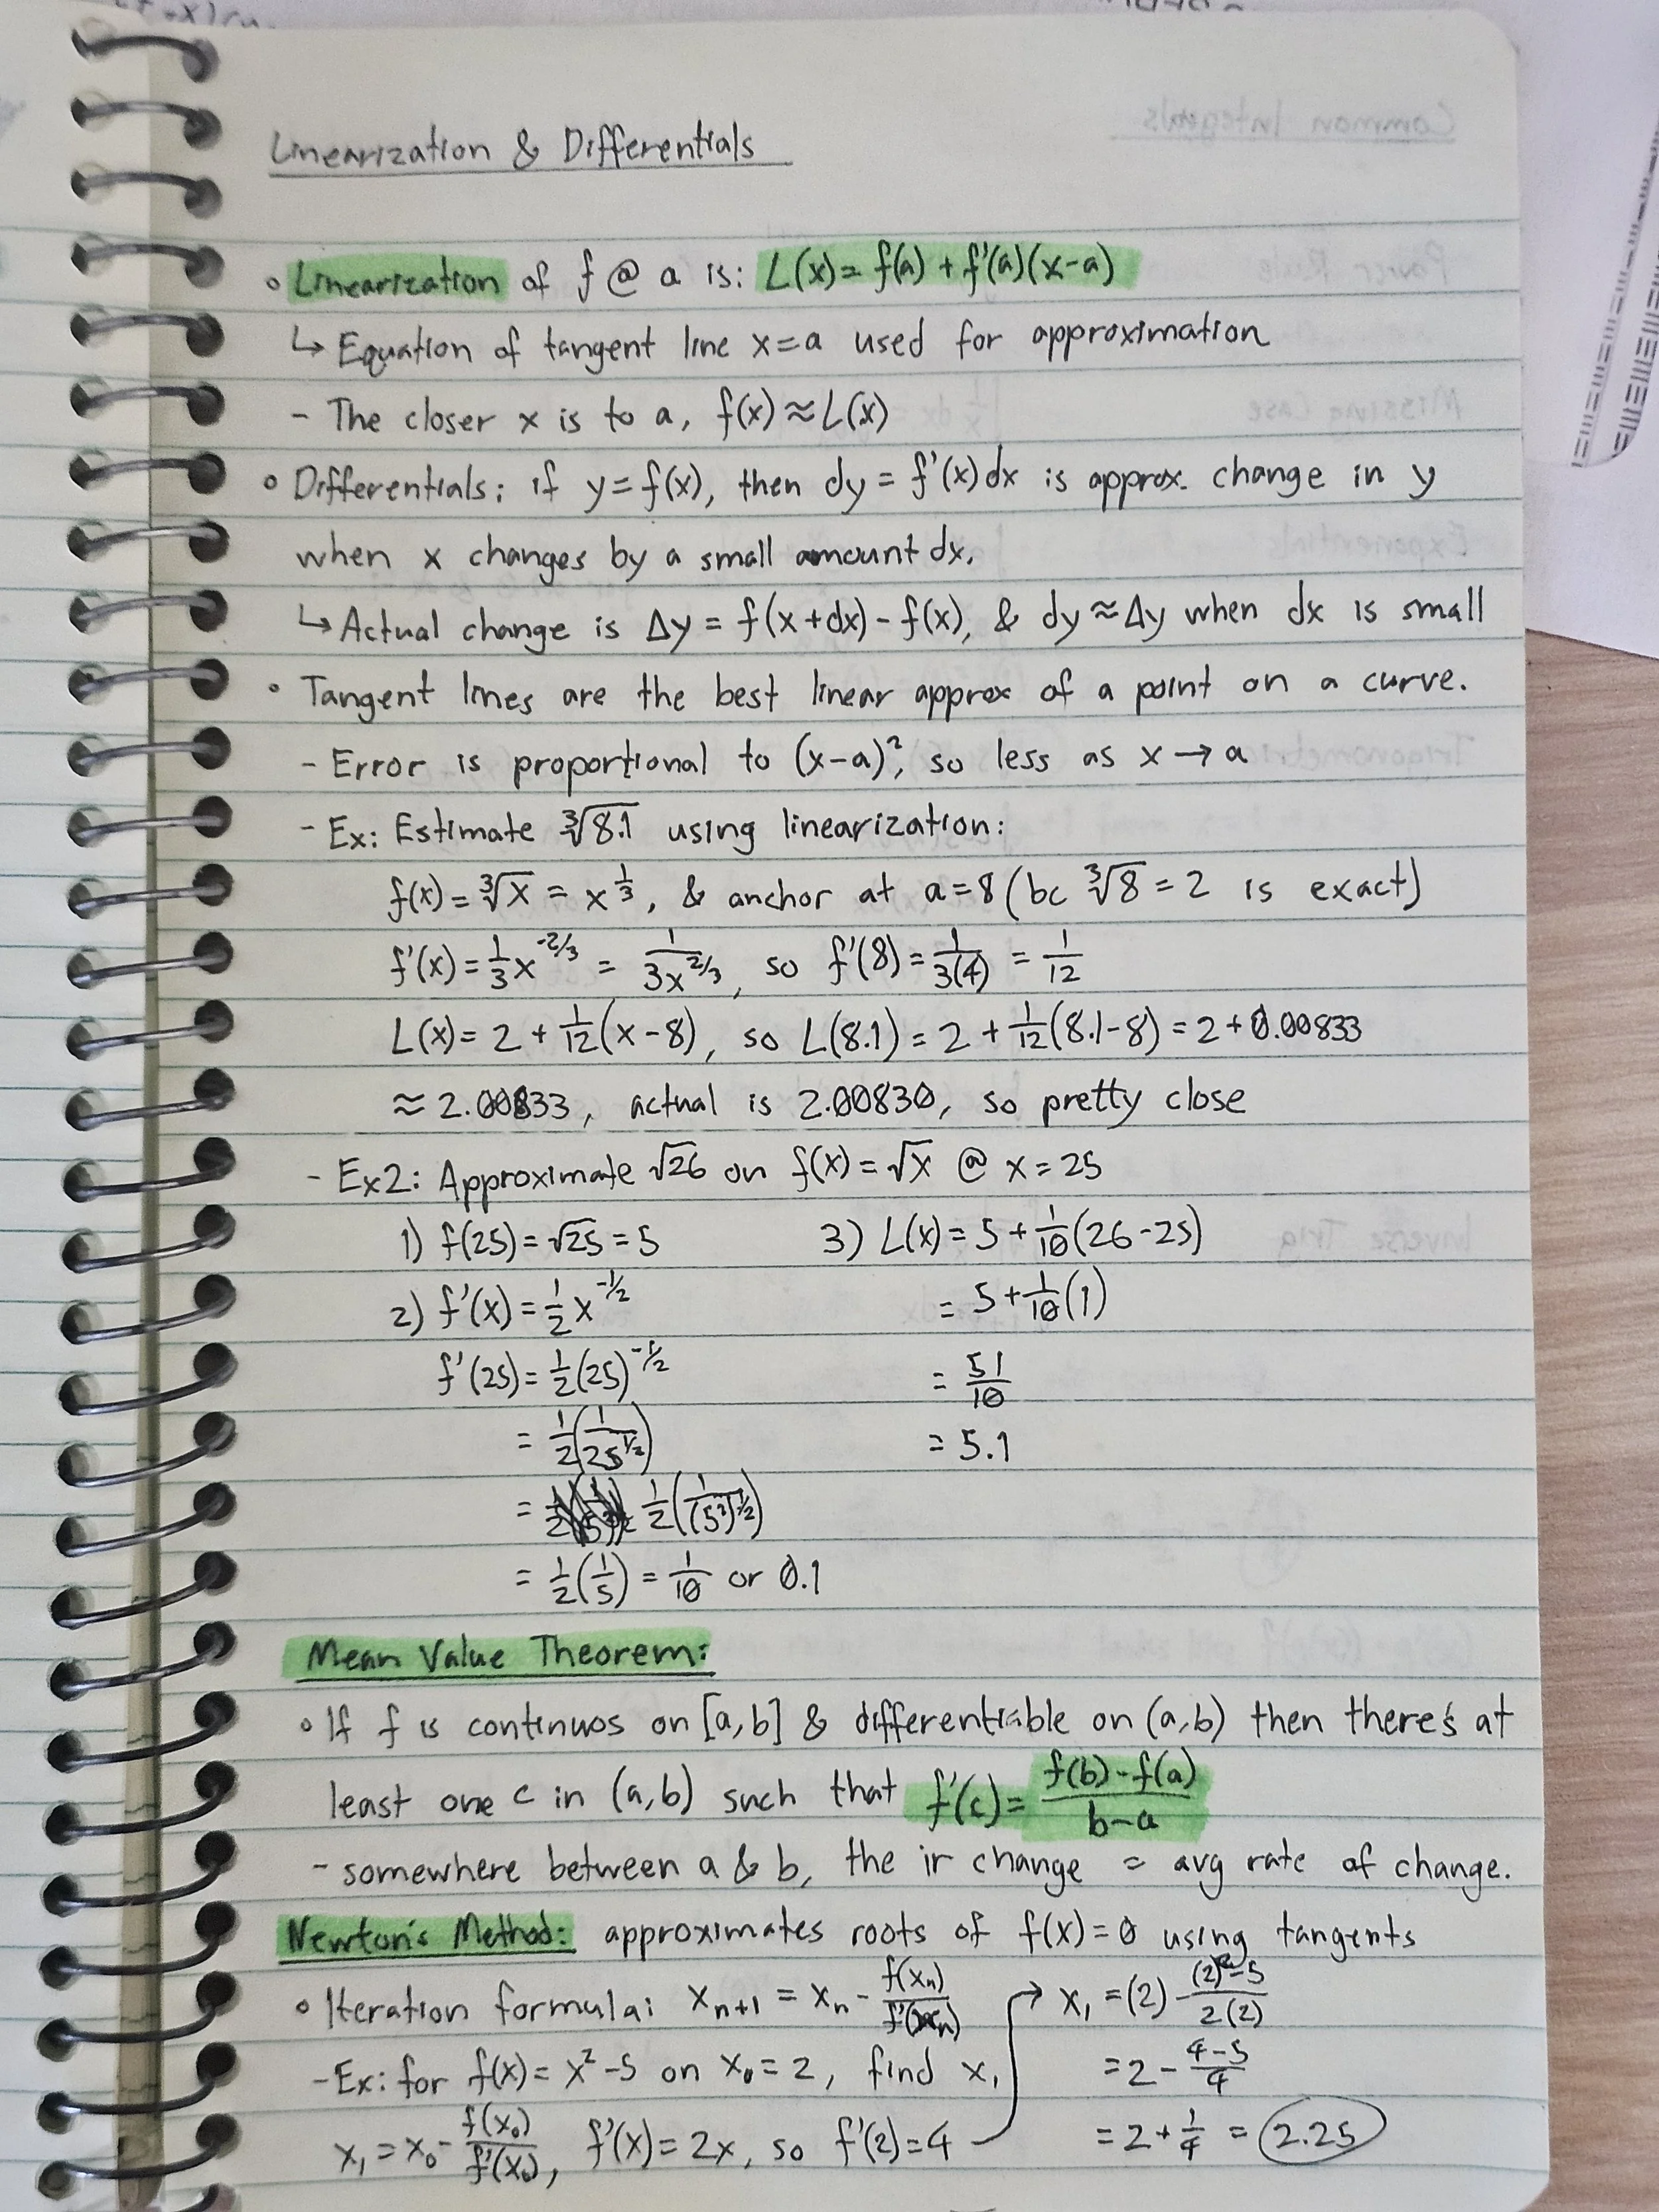 Linearization & Differentials
◦ Linearization of f @ a is: L(x) = f(a) + f'(a)(x-a)
↳ Equation of tangent line x=a used for approximation
- The closer x is to a, f(x) ≈ L(x)
◦ Differentials: if y = f(x), then dy = f'(x)dx is approx. change in y
when x changes by a small amount dx.
↳ Actual change is Δy = f(x+dx) - f(x), & dy ≈ Δy when dx is small
◦ Tangent lines are the best linear approx of a point on a curve.
- Error is proportional to (x-a)², so less as x → a
- Ex: Estimate ∛8.1 using linearization:
f(x) = ∛x = x^(1/3), & anchor at a=8 (bc ∛8 = 2 is exact)
f'(x) = 1/3 x^(-2/3) = 1/(3x^(2/3)), so f'(8) = 1/3(4) = 1/12
L(x) = 2 + 1/12(x-8), so L(8.1) = 2 + 1/12(8.1-8) = 2 + 0.00833
≈ 2.00833, actual is 2.00830, so pretty close
- Ex2: Approximate √26 on f(x) = √x @ x = 25
1) f(25) = √25 = 5
2) f'(x) = 1/2 x^(-1/2)
f'(25) = 1/2(25)^(-1/2)
= 1/2(1/25^(1/2))
= 1/2(1/(5²)^(1/2))
= 1/2(1/5) = 1/10 or 0.1
3) L(x) = 5 + 1/10(26-25)
= 5 + 1/10(1)
= 51/10
= 5.1
Mean Value Theorem:
◦ If f is continuos on [a,b] & differentiable on (a,b) then there's at
least one c in (a,b) such that f'(c) = (f(b)-f(a))/(b-a)
- somewhere between a & b, the ir change = avg rate of change.
Newton's Method: approximates roots of f(x)=0 using tangents
◦ Iteration formula: x_(n+1) = x_n - f(x_n)/f'(x_n)
- Ex: for f(x) = x² - 5 on x₀ = 2, find x₁
x₁ = x₀ - f(x₀)/f'(x₀), f'(x) = 2x, so f'(2) = 4
→ x₁ = (2) - ((2)²-5)/2(2)
= 2 - (4-5)/4
= 2 + 1/4 = 2.25